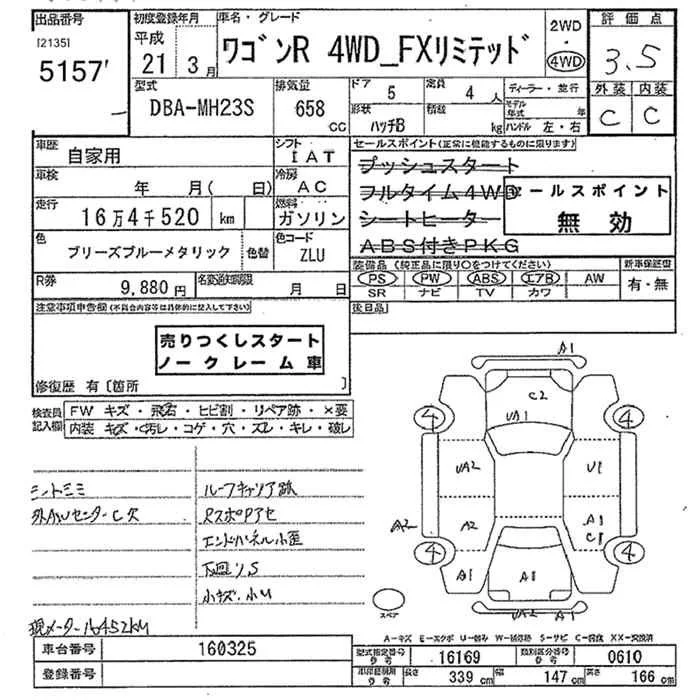 出品番号 初度登録年月 車名・グレード 2WD 評価点
[2135] 平成 ワゴンR 4WD_FXリミテッド ・
5157 21年 3月 4WD 3.5
型式 排気量 ドア 5 定員 4人 ディーラー・並行 外装 内装
DBA-MH23S 658 CC 形状 ハッチB 積載 kg モデル年式 年 C C
ハンドル 左・右
車歴 自家用 シフト IAT セールスポイント(正常に機能するものに限ります)
車検 年 月( 日) 冷房 AC プッシュスタート
走行 16万4千520 km 燃料 ガソリン フルタイム4WD
シートヒーター
ABS付きPKG
セールスポイント
無効
色 ブリーズブルーメタリック 色替 色コード ZLU
装備品(純正品に限り○をつけてください) 新車保証書
R券 9,880円 名変通知期限 月 日 PS PW ABS エアB AW 有・無
SR ナビ TV カワ
注意事項申告欄(不具合内容等は具体的に記入して下さい) 後日品
売りつくしスタート
ノークレーム車
修復歴 有[箇所 ]
検査員 FW キズ・飛石・ヒビ割・リペア跡・×要
記入欄 内装 キズ・汚レ・コゲ・穴・ズレ・キレ・破レ
ルーフキャリア跡
外AWセンターC欠
エンドパネル小歪
小キズ・小U
現メーター16452KM
A1
C2
UA1
4 4
UA2 U1
A2 A2 A1
C1
4 4
A1 A1
スペア
UA2 A1
A-キズ E-エクボ U-凹み W-補修跡 S-サビ C-腐食 XX-交換済
車台番号 160325 型式指定番号 16169 類別区分番号 0610
登録番号 長さ 339cm 幅 147cm 高さ 166cm